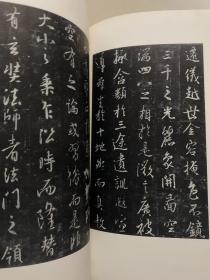 遺儀越世金容掩色不鏡
三千之光麗象開圖空
端四八之相於是微言廣被
拯含類於三途遺訓遐宣
導群生於十地然而真教
空有之論或習俗而是非
大小之乘乍沿時而隆替
有玄奘法師者法門之領